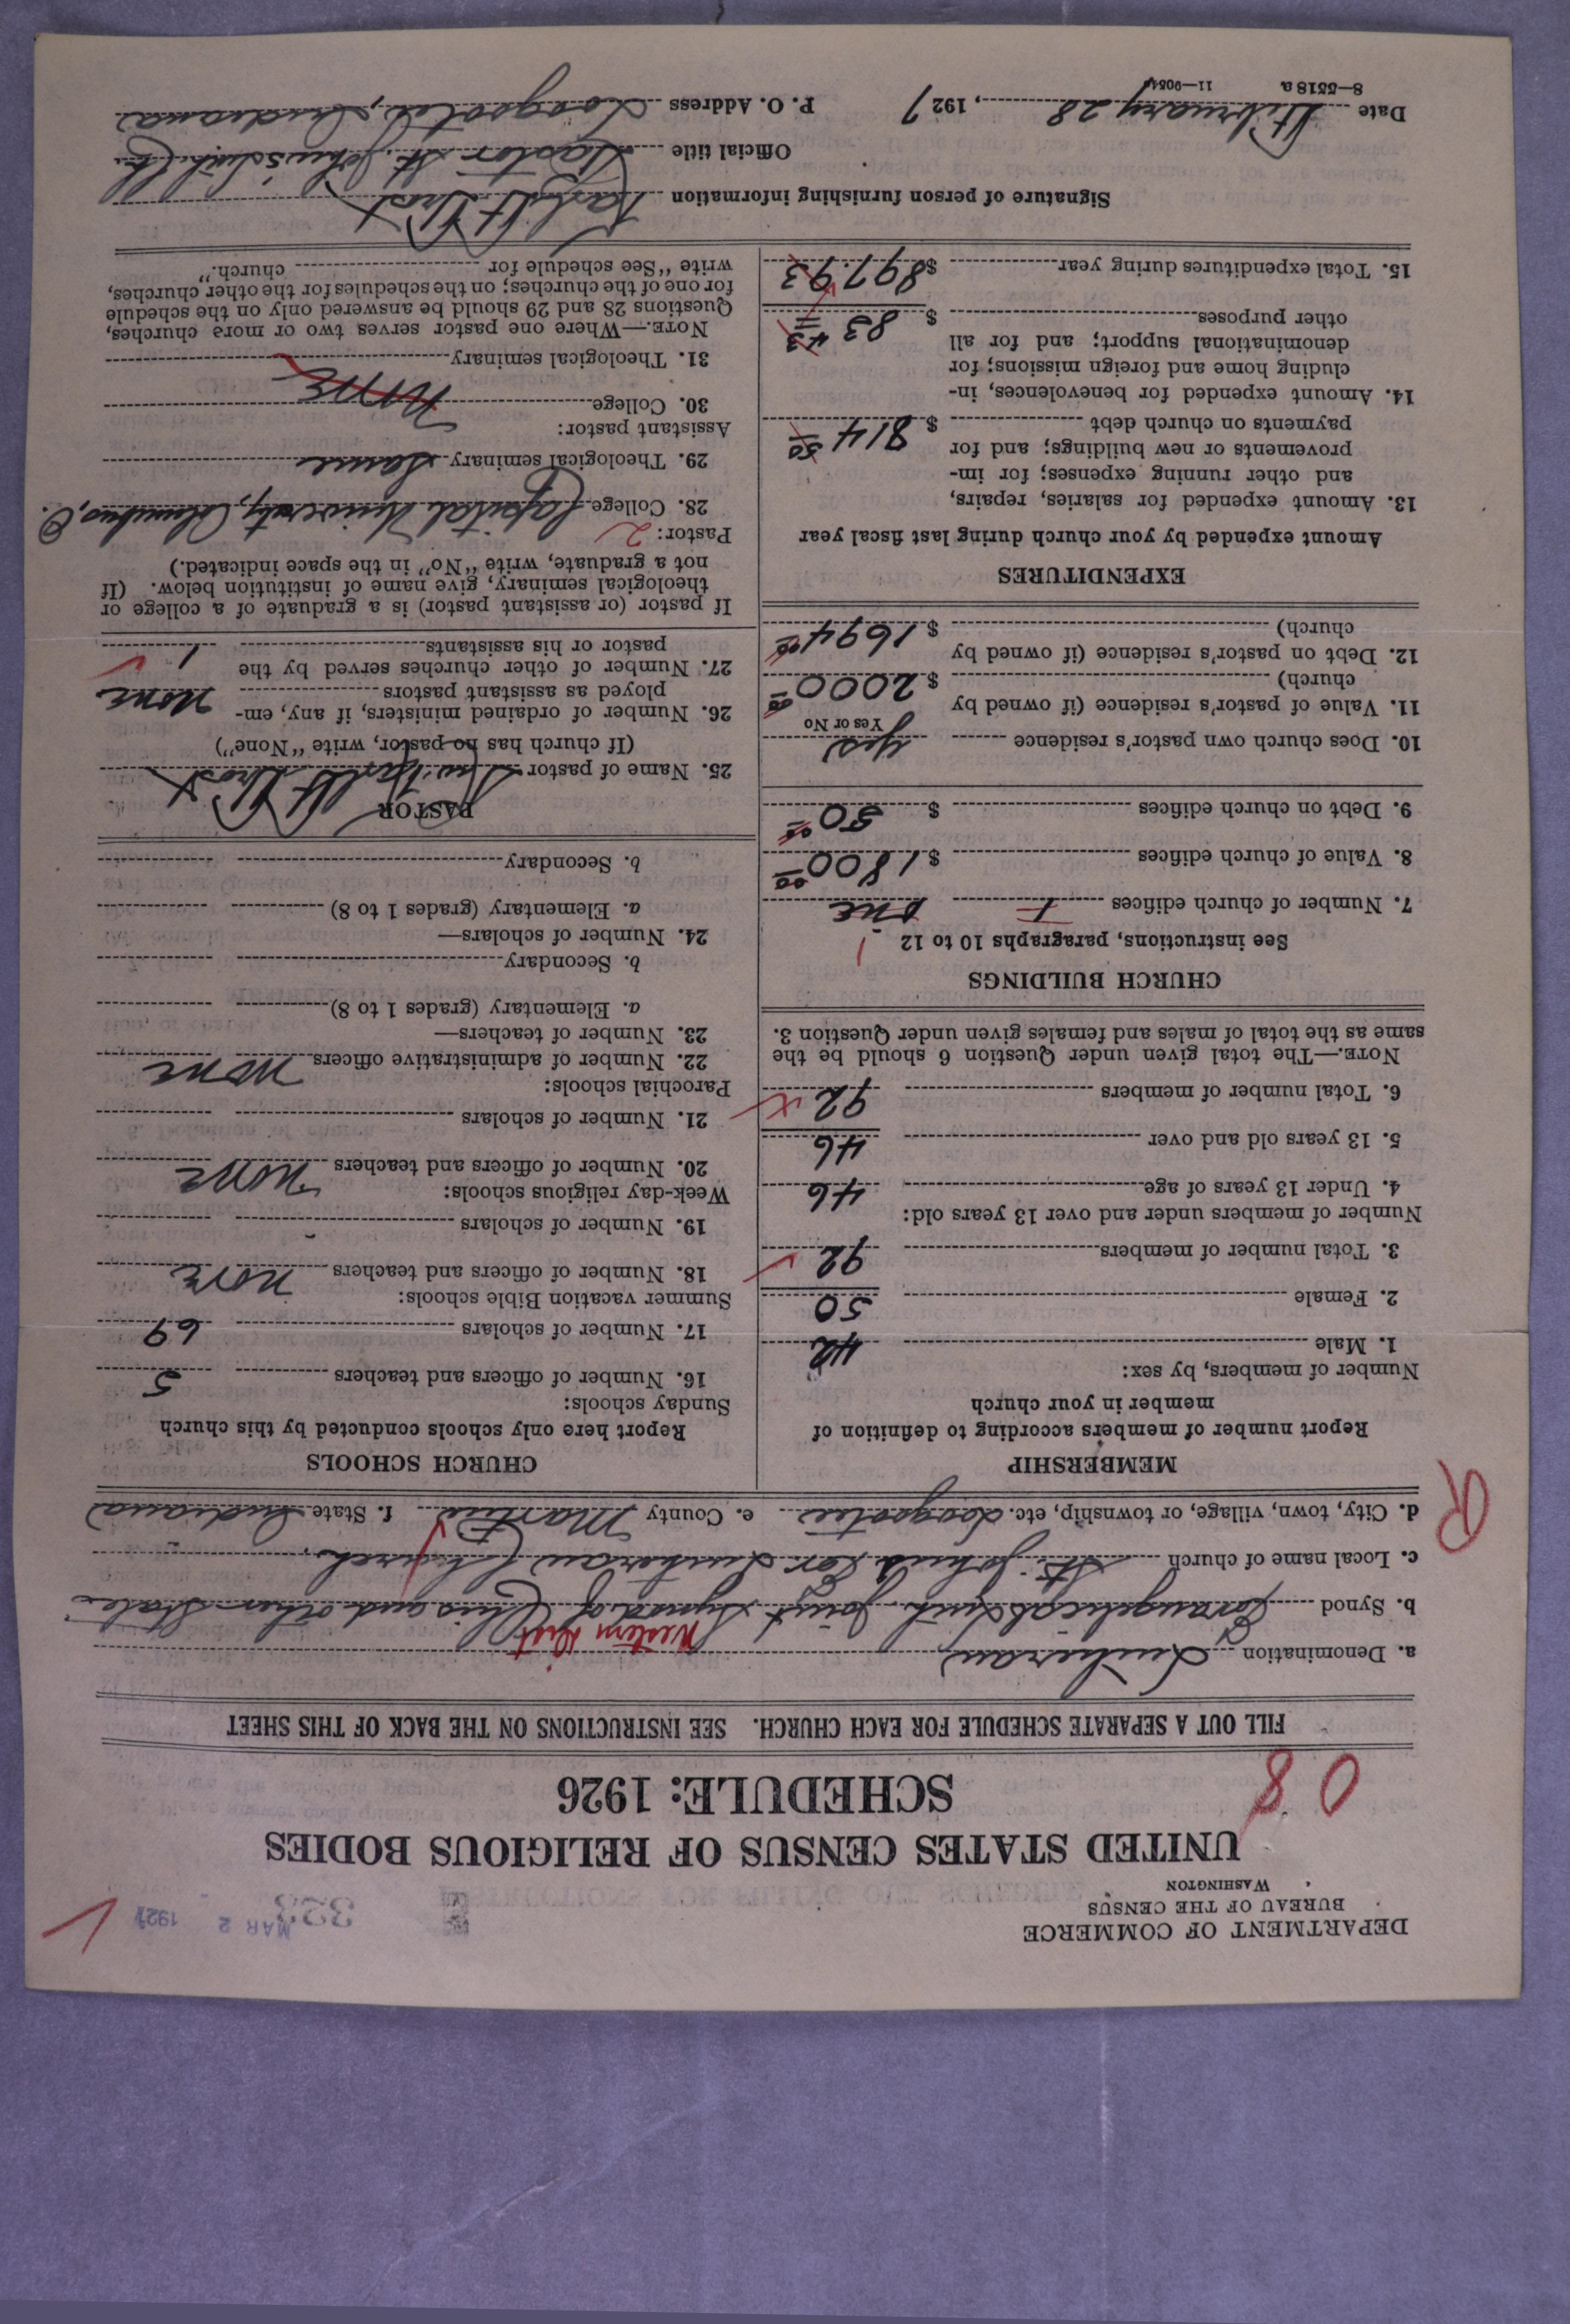 DEPARTMENT OF COMMERCE
BUREAU OF THE CENSUS
WASHINGTON
333
MAR 2 1927
UNITED STATES CENSUS OF RELIGIOUS BODIES
SCHEDULE: 1926
08
FILL OUT A SEPARATE SCHEDULE FOR EACH CHURCH. SEE INSTRUCTIONS ON THE BACK OF THIS SHEET
a. Denomination Lutheran
Western Dist
b. Synod Evangelical Luth. Joint Synod of Ohio and other States
c. Local name of church St. John's Ev. Lutheran Church
d. City, town, village, or township, etc. Loogootee e. County Martin f. State Indiana
R
MEMBERSHIP
Report number of members according to definition of
member in your church
Number of members, by sex:
1. Male 42
2. Female 50
3. Total number of members 92
Number of members under and over 13 years old:
4. Under 13 years of age 46
5. 13 years old and over 46
6. Total number of members 92
NOTE.—The total given under Question 6 should be the
same as the total of males and females given under Question 3.
CHURCH BUILDINGS
See instructions, paragraphs 10 to 12
1
7. Number of church edifices one
8. Value of church edifices $ 1800 00
9. Debt on church edifices $ 50 00
10. Does church own pastor's residence yes
Yes or No
11. Value of pastor's residence (if owned by
church) $ 2000 00
12. Debt on pastor's residence (if owned by
church) $ 1694 00
EXPENDITURES
Amount expended by your church during last fiscal year
13. Amount expended for salaries, repairs,
and other running expenses; for im-
provements or new buildings; and for
payments on church debt $ 814 50
14. Amount expended for benevolences, in-
cluding home and foreign missions; for
denominational support; and for all
other purposes $ 83 43
15. Total expenditures during year $ 897.93
CHURCH SCHOOLS
Report here only schools conducted by this church
Sunday schools:
16. Number of officers and teachers 5
17. Number of scholars 69
Summer vacation Bible schools:
18. Number of officers and teachers none
19. Number of scholars
Week-day religious schools:
20. Number of officers and teachers none
21. Number of scholars
Parochial schools:
22. Number of administrative officers none
23. Number of teachers—
a. Elementary (grades 1 to 8)
b. Secondary
24. Number of scholars—
a. Elementary (grades 1 to 8)
b. Secondary
PASTOR
25. Name of pastor
(If church has no pastor, write "None")
26. Number of ordained ministers, if any, em-
ployed as assistant pastors none
27. Number of other churches served by the
pastor or his assistants 1
If pastor (or assistant pastor) is a graduate of a college or
theological seminary, give name of institution below. (If
not a graduate, write "No" in the space indicated.)
Pastor: 2
28. College Capital University, Columbus, O.
29. Theological seminary Same
Assistant pastor:
30. College none
31. Theological seminary
NOTE.—Where one pastor serves two or more churches,
Questions 28 and 29 should be answered only on the schedule
for one of the churches; on the schedules for the other churches,
write "See schedule for church."
Signature of person furnishing information
Official title Pastor St. John's Luth. Ch.
Date February 28, 1927 P. O. Address Loogootee, Indiana
8—5518a 11—9054